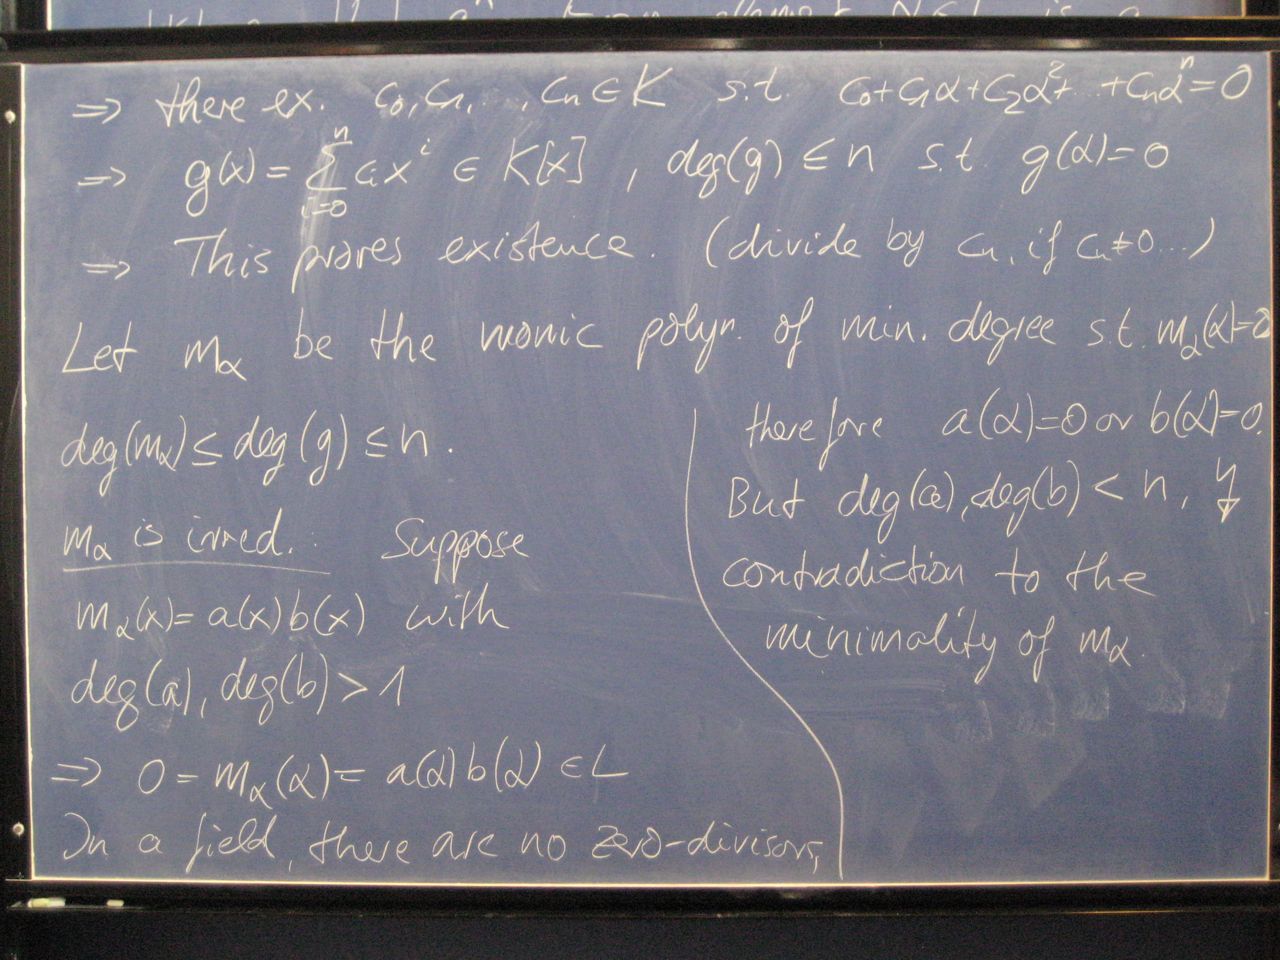 ⇒ there ex. c₀, c₁, ..., cₙ ∈ K s.t. c₀+c₁α+c₂α²+...+cₙαⁿ=0
⇒ g(x) = ∑_{i=0}^{n} cᵢxⁱ ∈ K[x], deg(g) ≤ n s.t. g(α)=0
⇒ This proves existence. (divide by cₙ, if cₙ≠0...)
Let m_α be the monic polyn. of min. degree s.t. m_α(α)=0
deg(m_α) ≤ deg(g) ≤ n.
m_α is irred.: Suppose
m_α(x) = a(x)b(x) with
deg(a), deg(b) > 1
⇒ 0 = m_α(α) = a(α)b(α) ∈ L
In a field, there are no zero-divisors,
therefore a(α)=0 or b(α)=0.
But deg(a), deg(b) < n, ↯
contradiction to the
minimality of m_α.